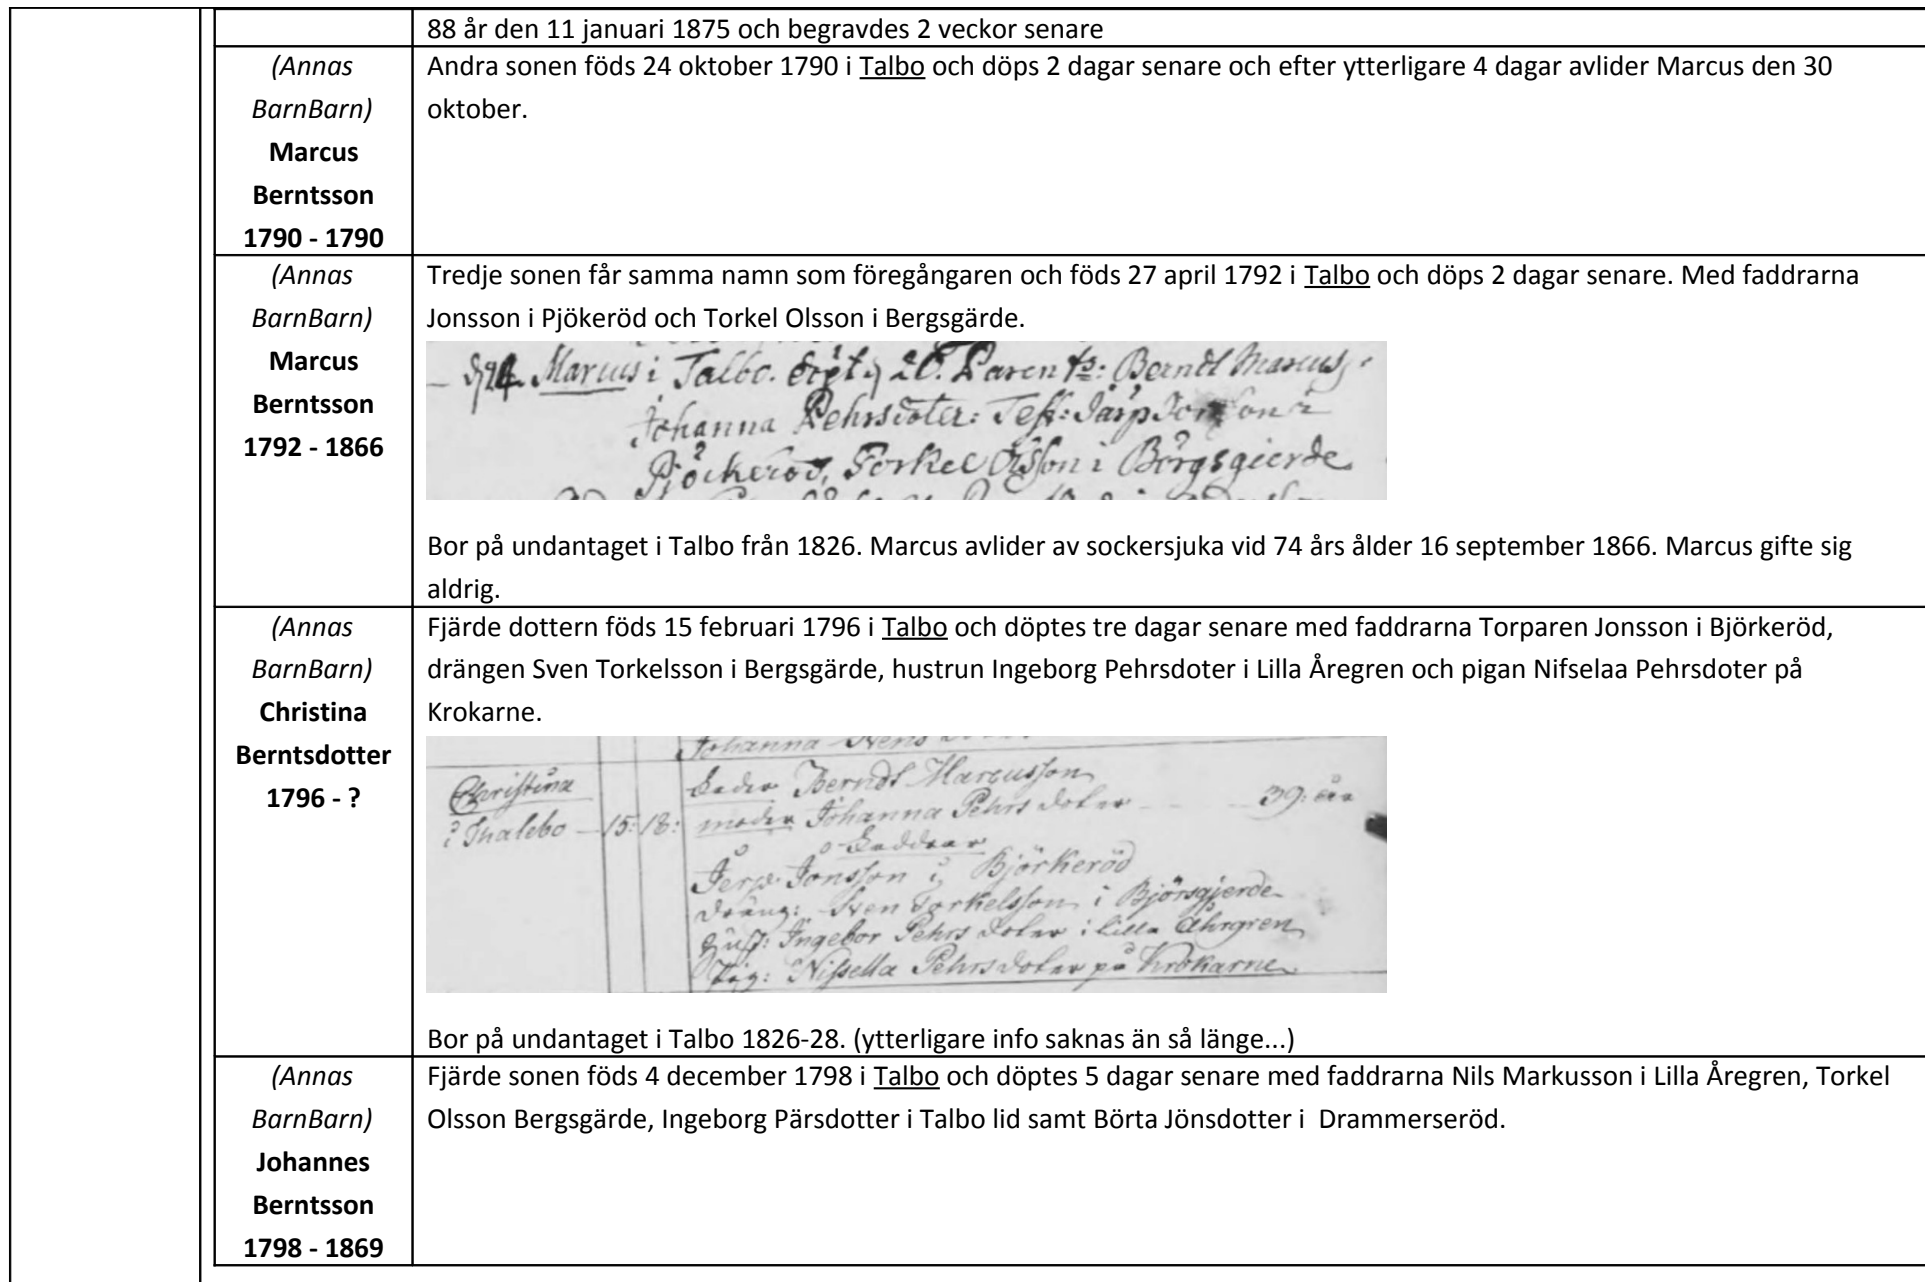 88 år den 11 januari 1875 och begravdes 2 veckor senare
(Annas
BarnBarn)
Marcus
Berntsson
1790 - 1790
Andra sonen föds 24 oktober 1790 i Talbo och döps 2 dagar senare och efter ytterligare 4 dagar avlider Marcus den 30
oktober.
(Annas
BarnBarn)
Marcus
Berntsson
1792 - 1866
Tredje sonen får samma namn som föregångaren och föds 27 april 1792 i Talbo och döps 2 dagar senare. Med faddrarna
Jonsson i Pjökeröd och Torkel Olsson i Bergsgärde.
Marcus i Talbo. Parents: Berndt Marcuss:
Johanna Pehrsdoter: Test: Jonsson i
Pjöckeröd, Torkel Olsson i Börgsgierde
Bor på undantaget i Talbo från 1826. Marcus avlider av sockersjuka vid 74 års ålder 16 september 1866. Marcus gifte sig
aldrig.
(Annas
BarnBarn)
Christina
Berntsdotter
1796 - ?
Fjärde dottern föds 15 februari 1796 i Talbo och döptes tre dagar senare med faddrarna Torparen Jonsson i Björkeröd,
drängen Sven Torkelsson i Bergsgärde, hustrun Ingeborg Pehrsdoter i Lilla Åregren och pigan Nifselaa Pehrsdoter på
Krokarne.
Johanna Svens
Christina fader Berndt Marcusson
i Thalebo 15: 18: moder Johanna Pehrs doter 39: åra
faddrar
Jonsson i Björkeröd
dräng: Sven Torkelsson i Björsgjerde
hust: Ingebor Pehrs doter i lilla Åhrgren
Pig: Nissella Pehrs doter på Krokarne
Bor på undantaget i Talbo 1826-28. (ytterligare info saknas än så länge...)
(Annas
BarnBarn)
Johannes
Berntsson
1798 - 1869
Fjärde sonen föds 4 december 1798 i Talbo och döptes 5 dagar senare med faddrarna Nils Markusson i Lilla Åregren, Torkel
Olsson Bergsgärde, Ingeborg Pärsdotter i Talbo lid samt Börta Jönsdotter i  Drammerseröd.